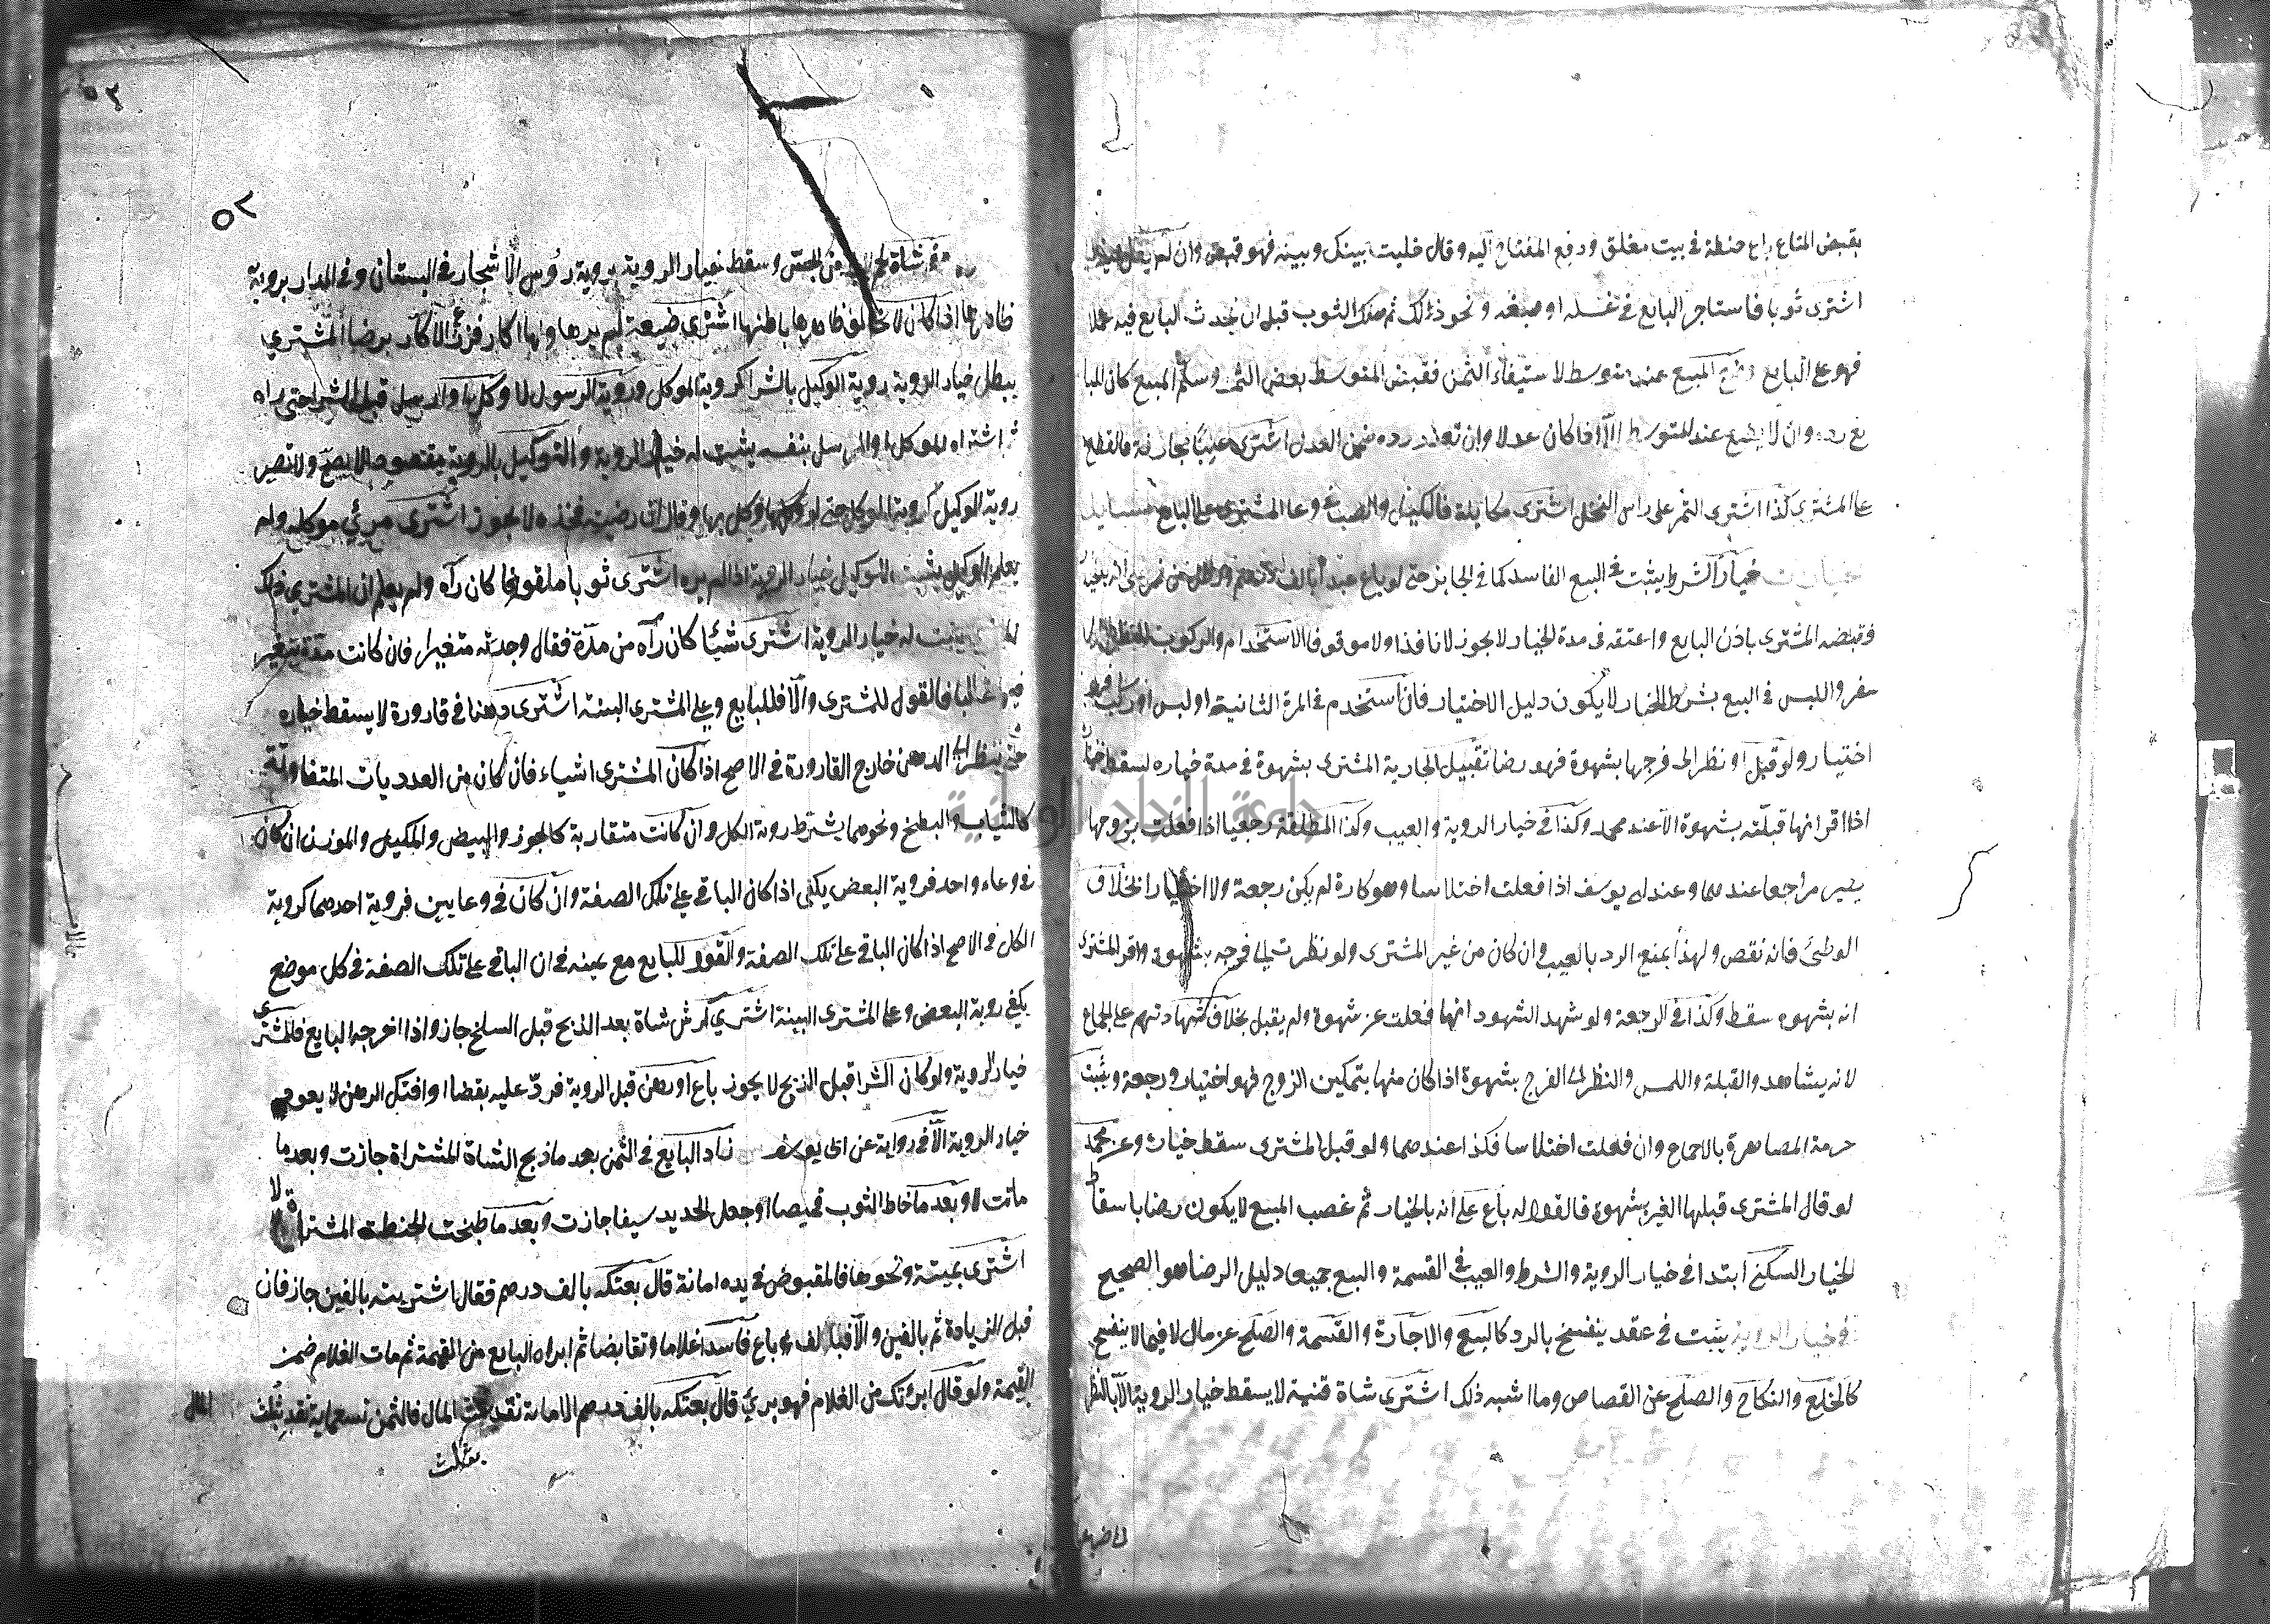 بقبض المتاع باع حنطة في بيت مغلق ودفع المفتاح اليه وقال خليت بينك وبينه فهو قبض وان لم يقل
اشترى ثوبا فاستاجر البايع في غسله او صبغه ونحو ذلك ثم هلك الثوب قبل ان يحدث البايع فيه عملا
فهو على البايع وضع المبيع عند متوسط لاستيفاء الثمن فقبض المتوسط بعض الثمن وسلم المبيع كان للبا
يع رده وان لا يضع عند المتوسط الا اذا كان عدلا وان تعذر رده ضمن العدل اشترى عنبا مجازفة فالقطع
على المشتري كذا اشترى الثمر على راس النخل اشترى مكايلة فالكيل والصب في وعا المشترى على البايع مسايل
خيار الشرط يثبت في البيع الفاسد كما في الجايز حتى لو باع عبدا بالف
فقبضه المشترى باذن البايع واعتقه في مدة الخيار لا يجوز لا نافذا ولا موقوفا الاستخدام والركوب
سفر واللبس في البيع بشرط الخيار لا يكون دليل الاختيار فان استخدم في المرة الثانية او لبس او ركب فهو
اختيار ولو قبل او نظر الى فرجها بشهوة فهو رضا تقبيل الجارية المشترى بشهوة في مدة خياره يسقط خياره
اذا اقر انها قبلته بشهوة الا عند محمد وكذا في خيار الروية والعيب وكذا المطلقة رجعيا اذا فعلت بزوجها
يصير مراجعا عندهما وعند ابي يوسف اذا فعلت اختلاسا وهو كاره لم يكن رجعة ولا اختيارا بخلاف
الوطئ فانه نقص ولهذا يمنع الرد بالعيب وان كان من غير المشترى ولو نظرت الى فرجه بشهوة واقر المشترى
انه بشهوة سقط وكذا في الرجعة ولو شهد الشهود انها فعلت عن شهوة ولم يقبل بخلاف شهادتهم على الجماع
لانه يشاهد والقبلة واللمس والنظر الى الفرج بشهوة اذا كان منها بتمكين الزوج فهو اختيار ورجعة ويثبت
حرمة المصاهرة بالاجماع وان فعلت اختلاسا فكذا عندهما ولو قبل المشترى سقط خياره وعن محمد
لو قال المشترى قبلها لغير شهوة فالقول له باع على انه بالخيار ثم غصب المبيع لا يكون رضا باسقاط
الخيار السكنى ابتدا في خيار الروية والشرط والعيب في القسمة والبيع جميعا دليل الرضا هو الصحيح
في خيار الروية يثبت في عقد ينفسخ بالرد كالبيع والاجارة والقسمة والصلح عن مال لا فيما لا ينفسخ
كالخلع والنكاح والصلح عن القصاص وما اشبه ذلك اشترى شاة قنية لا يسقط خيار الروية الا بالنظر
٥٢
٥٢
وفي شاة لحم لا بد من الجس وسقط خيار الروية بروية رؤس الاشجار في البستان وفي الدار بروية
ظاهرها اذا كان لا يخالف ظاهرها باطنها اشترى ضيعة لم يرها ولها اكار فزرع الاكار برضا المشتري
يبطل خيار الروية روية الوكيل بالشرا كروية الموكل وروية الرسول لا وكل او ارسل قبل الشرا حتى راه
ثم اشتراه الموكل او المرسل بنفسه يثبت له خيار الروية والتوكيل بالروية مقصودا لا يصح ولا تصير
روية الوكيل كروية الموكل حتى لو وكل بها وقال ان رضيت فخذه لا يجوز اشترى مرئي موكله ولم
يعلم الوكيل يثبت للوكيل خيار الروية اذا لم يره اشترى ثوبا ملفوفا كان رآه ولم يعلم ان المشترى ذلك
يثبت له خيار الروية اشترى شيأ كان رآه من مدة فقال وجدته متغيرا فان كانت مدة يتغير
فيها غالبا فالقول للمشترى والا فللبايع وعلى المشترى البينة اشترى دهنا في قارورة لا يسقط خياره
حتى ينظر الى الدهن خارج القارورة في الاصح اذا كان المشترى اشياء فان كان من العدديات المتفاوتة
كالثياب والبطيخ ونحوهما يشترط روية الكل وان كانت متقاربة كالجوز والبيض والمكيل والموزون ان كان
في وعاء واحد فروية البعض يكفى اذا كان الباقي على تلك الصفة وان كان في وعايين فروية احدهما كروية
الكل في الاصح اذا كان الباقي على تلك الصفة والقول للبايع مع يمينه في ان الباقي على تلك الصفة في كل موضع
يكفي روية البعض وعلى المشترى البينة اشترى كرش شاة بعد الذبح قبل السلخ جاز واذا اخرجه البايع فللمشترى
خيار الروية ولو كان الشرا قبل الذبح لا يجوز باع او رهن قبل الروية فرد عليه بقضا او افتك الرهن لا يعود
خيار الروية الا في رواية عن ابى يوسف زاد البايع في الثمن بعد ما ذبح الشاة المشتراة جازت وبعد ما
ماتت لا وبعد ما خاط الثوب قميصا او جعل الحديد سيفا جازت وبعد ما طبخت الحنطة المشتراة لا
اشترى بميتة ونحوها فالمقبوض في يده امانة قال بعتكه بالف درهم فقال اشتريته بالفين جاز فان
قبل الزيادة ثم بالفين والا فبالف باع فاسدا غلاما وتقابضا ثم ابراه البايع من القيمة ثم مات الغلام ضمن
القيمة ولو قال ابرؤتك من الغلام فهو بريئ قال بعتكه بالف درهم الا مائة نقد ثلث المال فالثمن تسعماية نقد بثلث المال
بثلث
جامعة النجاح الوطنية